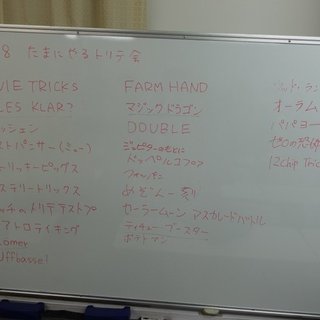 8 たまにやるトリテ会
VIE TRICKS
LES KLAR?
ッシェン
ストパンサー(ミュー)
トリッキーピッグス
ステリートリックス
のトリテテストプ
アトロティキング
lomer
uffbasse!
FARM HAND
マジックドラゴン
DOUBLE
ジュピターのもとに
ドッペルコプァ
フォッパン
めぞん一刻
セーラームーン アスカレードバトル
ティチューブースター
ポテトマン
オーラム
パパヨー
ゼロの恐怖
12chip Tric